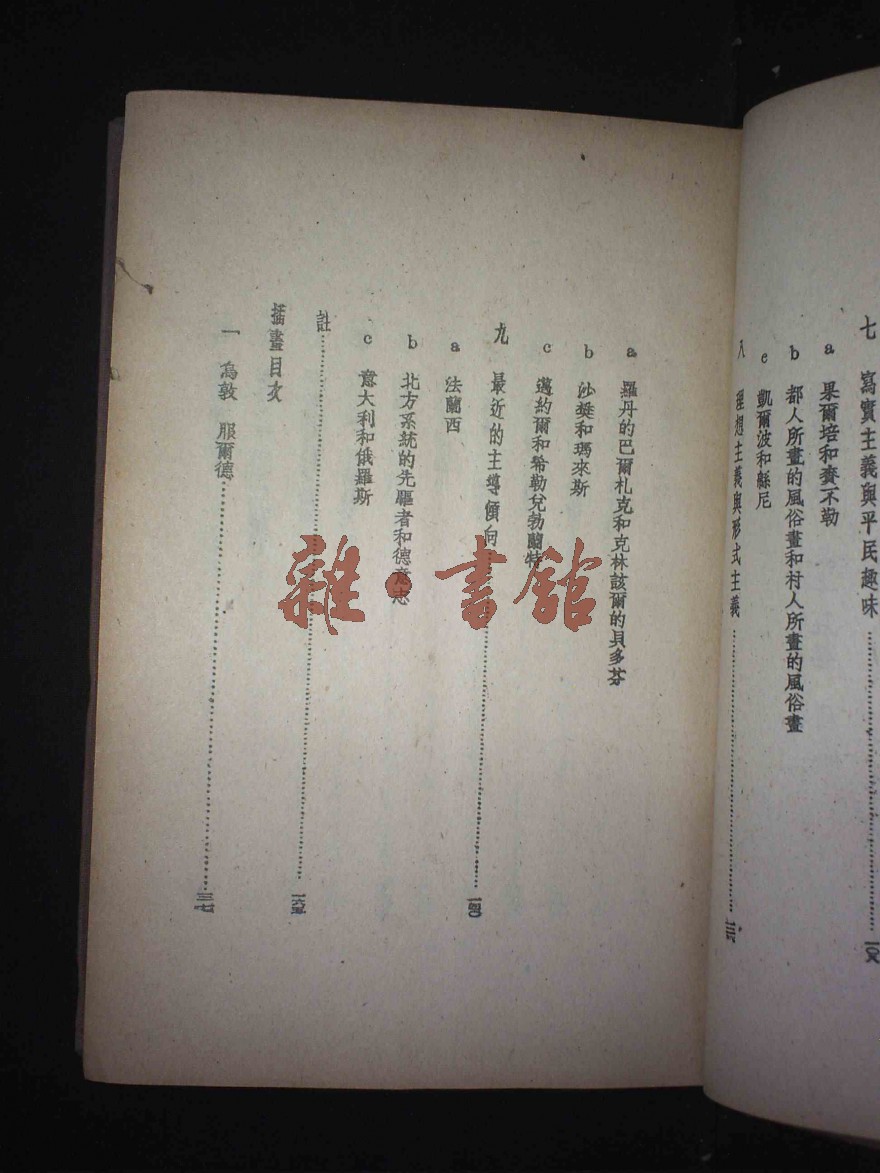 七 寫實主義與平民趣味
a 果爾培和賽不勒
b 都人所畫的風俗畫和村人所畫的風俗畫
c 凱爾波和緜尼
八 理想主義與形式主義
a 羅丹的巴爾札克和克林該爾的貝多芬
b 沙樊和瑪來斯
c 邁約爾和希勒兌勃蘭特
九 最近的主導傾向 一四〇
a 法蘭西
b 北方系統的先驅者和德意志
c 意大利和俄羅斯
註
插畫目次
一 烏敦 服爾德
雜·書館